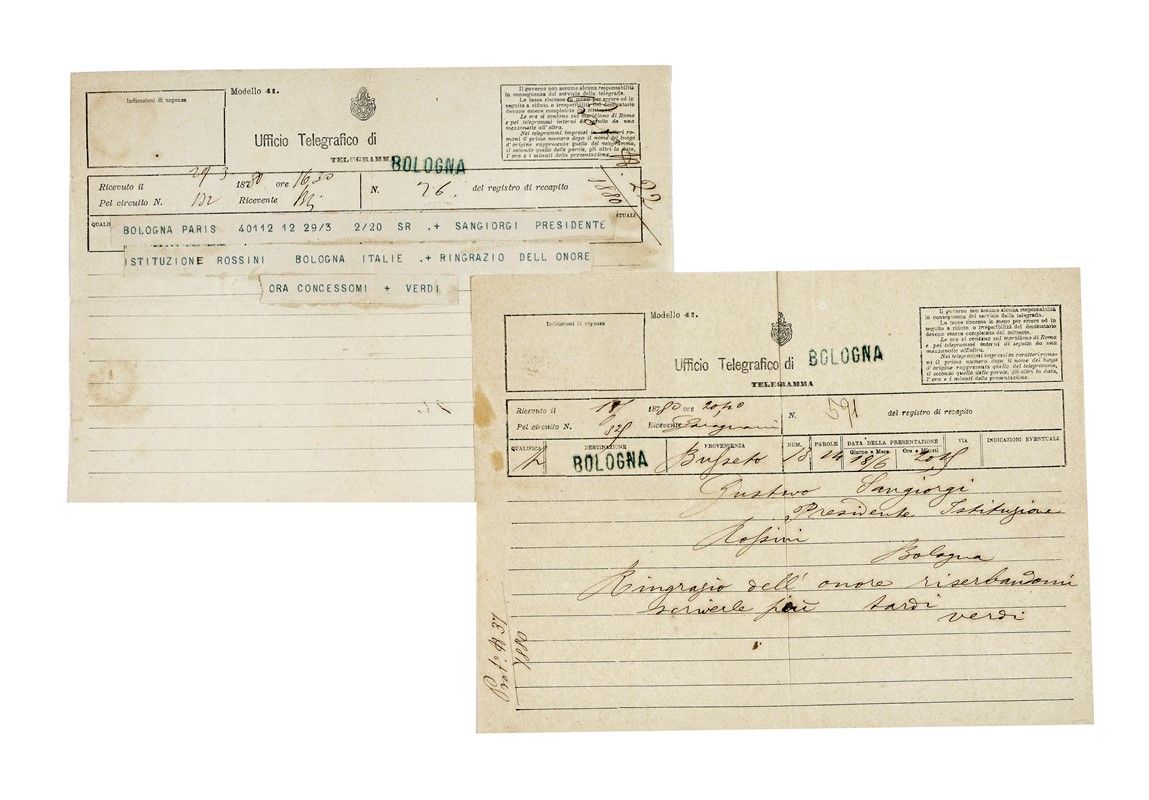 Indicazioni di urgenza
Modello 41.
Ufficio Telegrafico di
TELEGRAMMA
BOLOGNA
Il governo non assume alcuna responsabilità
in conseguenza del servizio della telegrafia.
Le tasse riscosse in meno per errore od in
seguito a rifiuto o irreperibilità del destinatario
devono essere completate dal mittente.
Le ore si contano sul meridiano di Roma
e pei telegrammi interni di seguito da una
mezzanotte all'altra.
Nei telegrammi impressi in caratteri
romani il primo numero dopo il nome del luogo
d'origine rappresenta quello del telegramma,
il secondo quello delle parole, gli altri la data,
l'ora e i minuti della presentazione.
Ricevuto il 29/3 1880 ore 16,30
Pel circuito N. Ricevente
N. 26. del registro di recapito
N. 22
1880
QUALI
TUALI
BOLOGNA PARIS 40112 12 29/3 2/20 SR .+ SANGIORGI PRESIDENTE
ISTITUZIONE ROSSINI BOLOGNA ITALIE .+ RINGRAZIO DELL ONORE
ORA CONCESSOMI + VERDI
Indicazioni di urgenza
Modello 41.
Ufficio Telegrafico di BOLOGNA
TELEGRAMMA
Il governo non assume alcuna responsabilità
in conseguenza del servizio della telegrafia.
Le tasse riscosse in meno per errore od in
seguito a rifiuto o irreperibilità del destinatario
devono essere completate dal mittente.
Le ore si contano sul meridiano di Roma
e pei telegrammi interni di seguito da una
mezzanotte all'altra.
Nei telegrammi impressi in caratteri roma-
ni il primo numero dopo il nome del luogo
d'origine rappresenta quello del telegramma,
il secondo quello delle parole, gli altri la data,
l'ora e i minuti della presentazione.
Ricevuto il 18/ 1880 ore 20,40
Pel circuito N. Ricevente
N. 591 del registro di recapito
QUALIFICA DESTINAZIONE PROVENIENZA NUM. PAROLE DATA DELLA PRESENTAZIONE VIA INDICAZIONI EVENTUALI
Giorno e Mese Ore e Minuti
BOLOGNA Busseto 13 14 18/6
Gustavo Sangiorgi
Presidente Istituzione
Rossini
Bologna
Ringrazio dell' onore riserbandomi
scriverle più tardi
verdi
1880